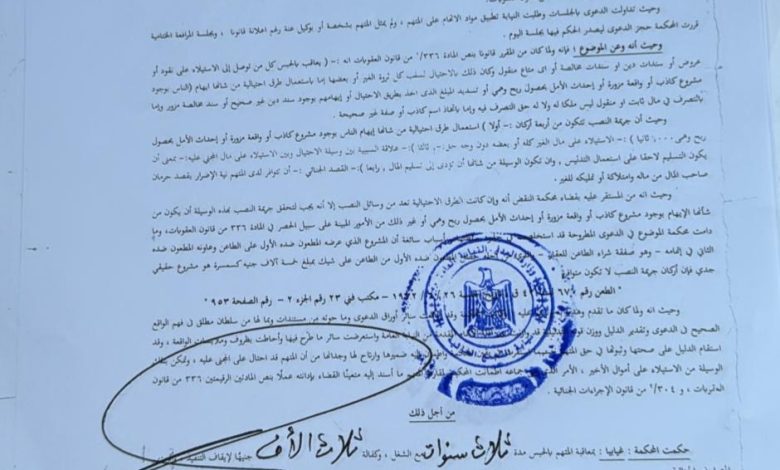 وحيث تداولت الدعوى بالجلسات وطلبت النيابة تطبيق مواد الاتهام على المتهم ، ولم يمثل المتهم بشخصة أو بوكيل عنة رغم اعلانة قانونا ، وبجلسة المرافعة الختامية
قررت المحكمة حجز الدعوى ليصدر الحكم فيها بجلسة اليوم .
وحيث أنه وعن الموضوع : فإنه ولما كان من المقرر قانونا بنص المادة ٣٣٦/ من قانون العقوبات انه :– ( يعاقب بالحبس كل من توصل إلى الاستيلاء على نقود أو
عروض أو سندات دين أو سندات مخالصة أو اى متاع منقول وكان ذلك بالاحتيال لسلب كل ثروة الغير أو بعضها إما باستعمال طرق احتيالية من شانها ايهام الناس بوجود
مشروع كاذب أو واقعة مزورة أو إحداث الأمل بحصول ربح وهمي أو تسديد المبلغ الذى اخذ بطريق الاحتيال أو إيهامهم بوجود سند دين غير صحيح أو سند مخالصة مزور وإما
بالتصرف في مال ثابت او منقول ليس ملكا له ولا له حق التصرف فيه وإما باتخاذ اسم كاذب أو صفة غير صحيحة .
وحيث أن جريمة النصب تتكون من أربعة أركان :– أولا ) استعمال طرق احتيالية من شانها إيهام الناس بوجود مشروع كاذب أو واقعة مزورة أو إحداث الأمل بحصول
ربح وهمى .... ثانيا ) :– الاستيلاء على مال الغير كله أو بعضه دون وجه حق ، ثالثا ) :– علاقة السببية بين وسيلة الاحتيال وبين الاستيلاء على مال المجني عليه :– بمعنى أن
يكون التسليم لاحقا على استعمال التدليس ، وان تكون الوسيلة من شانها أن تؤدى إلى تسليم المال ، رابعا ) :– القصد الجنائي :– أن تتوافر لدى المتهم نية الإضرار بقصد حرمان
صاحب المال من ماله وامتلاكة أو تمليكه للغير .
وحيث انه من المستقر عليه بقضاء محكمة النقض أنه وإن كانت الطرق الاحتيالية تعد من وسائل النصب إلا أنه يجب لتحقق جريمة النصب بهذه الوسيلة أن يكون من
شأنها الإيهام بوجود مشروع كاذب أو واقعة مزورة أو إحداث الأمل بحصول ربح وهمي أو غير ذلك من الأمور المبينة على سبيل الحصر في المادة ٣٣٦ من قانون العقوبات، وما
دامت محكمة الموضوع في الدعوى المطروحة قد بأسباب سائغة أن المشروع الذي عرضه المطعون ضده الأول على الطاعن وعاونه المطعون ضده
الثاني في إتمامه – وهو صفقة شراء الطاعن للعقار ضده الأول من الطاعن على شيك بمبلغ خمسة آلاف جنيه كسمسرة هو مشروع حقيقي
جدي فإن أركان جريمة النصب لا تكون متوافرة
" الطعن رقم ٢٦ – مكتب فني ٢٣ رقم الجزء ٢ – رقم الصفحة ٩٥٣ "
وحيث انه ولما كان ما تقدم سائر أوراق الدعوى وما حوته من مستندات وبما لها من سلطان مطلق في فهم الواقع
الصحيح في الدعوى وتقدير الدليل ووزن العامة واستعرضت سائر ما طرح فيها وأحاطت بظروف وملابسات الواقعة ، وقد
استقام الدليل على صحتها وثبوتها في حق المتهم ضميرها وارتاح لها وجدانها من أن المتهم قد احتال على المجني عليه ، وتمكن بتلك
الوسيلة من الاستيلاء على أموال الأخير ، الأمر الذى اطمأنت المحكمة ما أسند إليه متعينًا القضاء بإدانته عملًا بنص المادتين الرقيمتين ٣٣٦ من قانون
العقوبات ، و ٣٠٤/ من قانون الإجراءات الجنائية .
من أجل ذلك
حكمت المحكمة : غيابيا : بمعاقبة المتهم بالحبس مدة ثلاث سنوات مع الشغل ، وكفالة ثلاث الأف جنيها لإيقاف التنفيذ